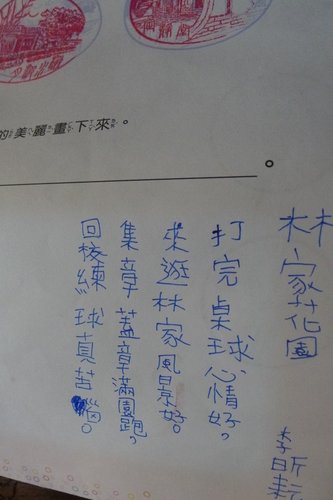 的美麗畫下來。
林家花園
李昕
打完桌球心情好，
來逛林家風景好。
集章蓋章滿園跑，
回校練球真苦惱。